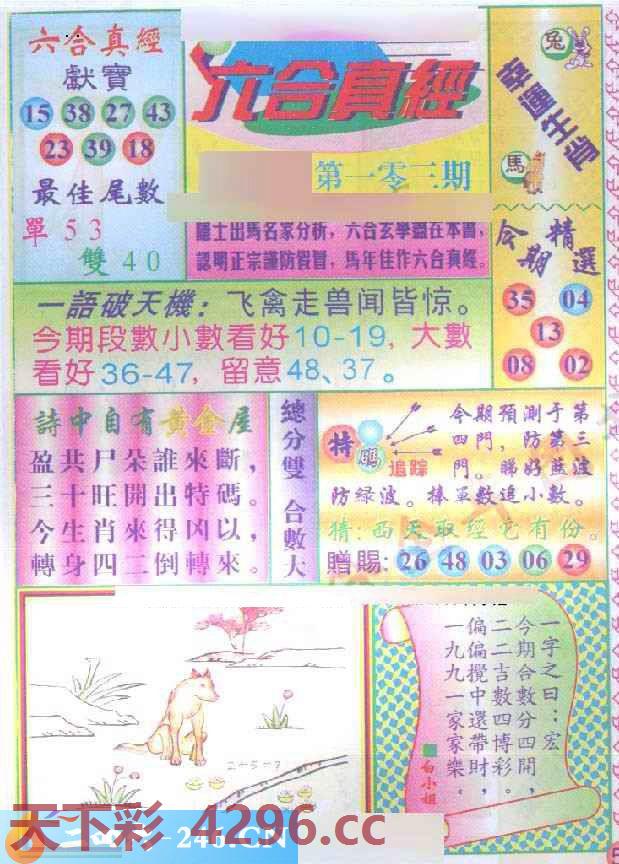 六合真經
獻寶
15 38 27 43
23 39 18
最佳尾數
單53
雙40
六合真經
第一零三期
隱士出馬名家分析，六合玄學盡在本書，
認明正宗謹防假冒，馬年佳作六合真經。
兔
幸運生肖
馬
今期精選
35 04
13
08 02
一語破天機：飞禽走兽闻皆惊。
今期段數小數看好10-19，大數
看好36-47，留意48、37。
詩中自有黃金屋
盈共尸朵誰來斷，
三十旺開出特碼。
今生肖來得凶以，
轉身四二倒轉來。
總分雙 合數大
特碼
追踪
今期預測于第
四門，防第三
門。睇好藍波
防緑波。捧單數追小數。
猜：西天取經它有份。
贈賜：26 48 03 06 29
二一5一?
一字之曰：宏
今期合數分四開，
二二吉數四博彩。
偏偏攪中還帶財，
一九九一家家樂。
白小姐
天下彩 4296.cc
246.CN